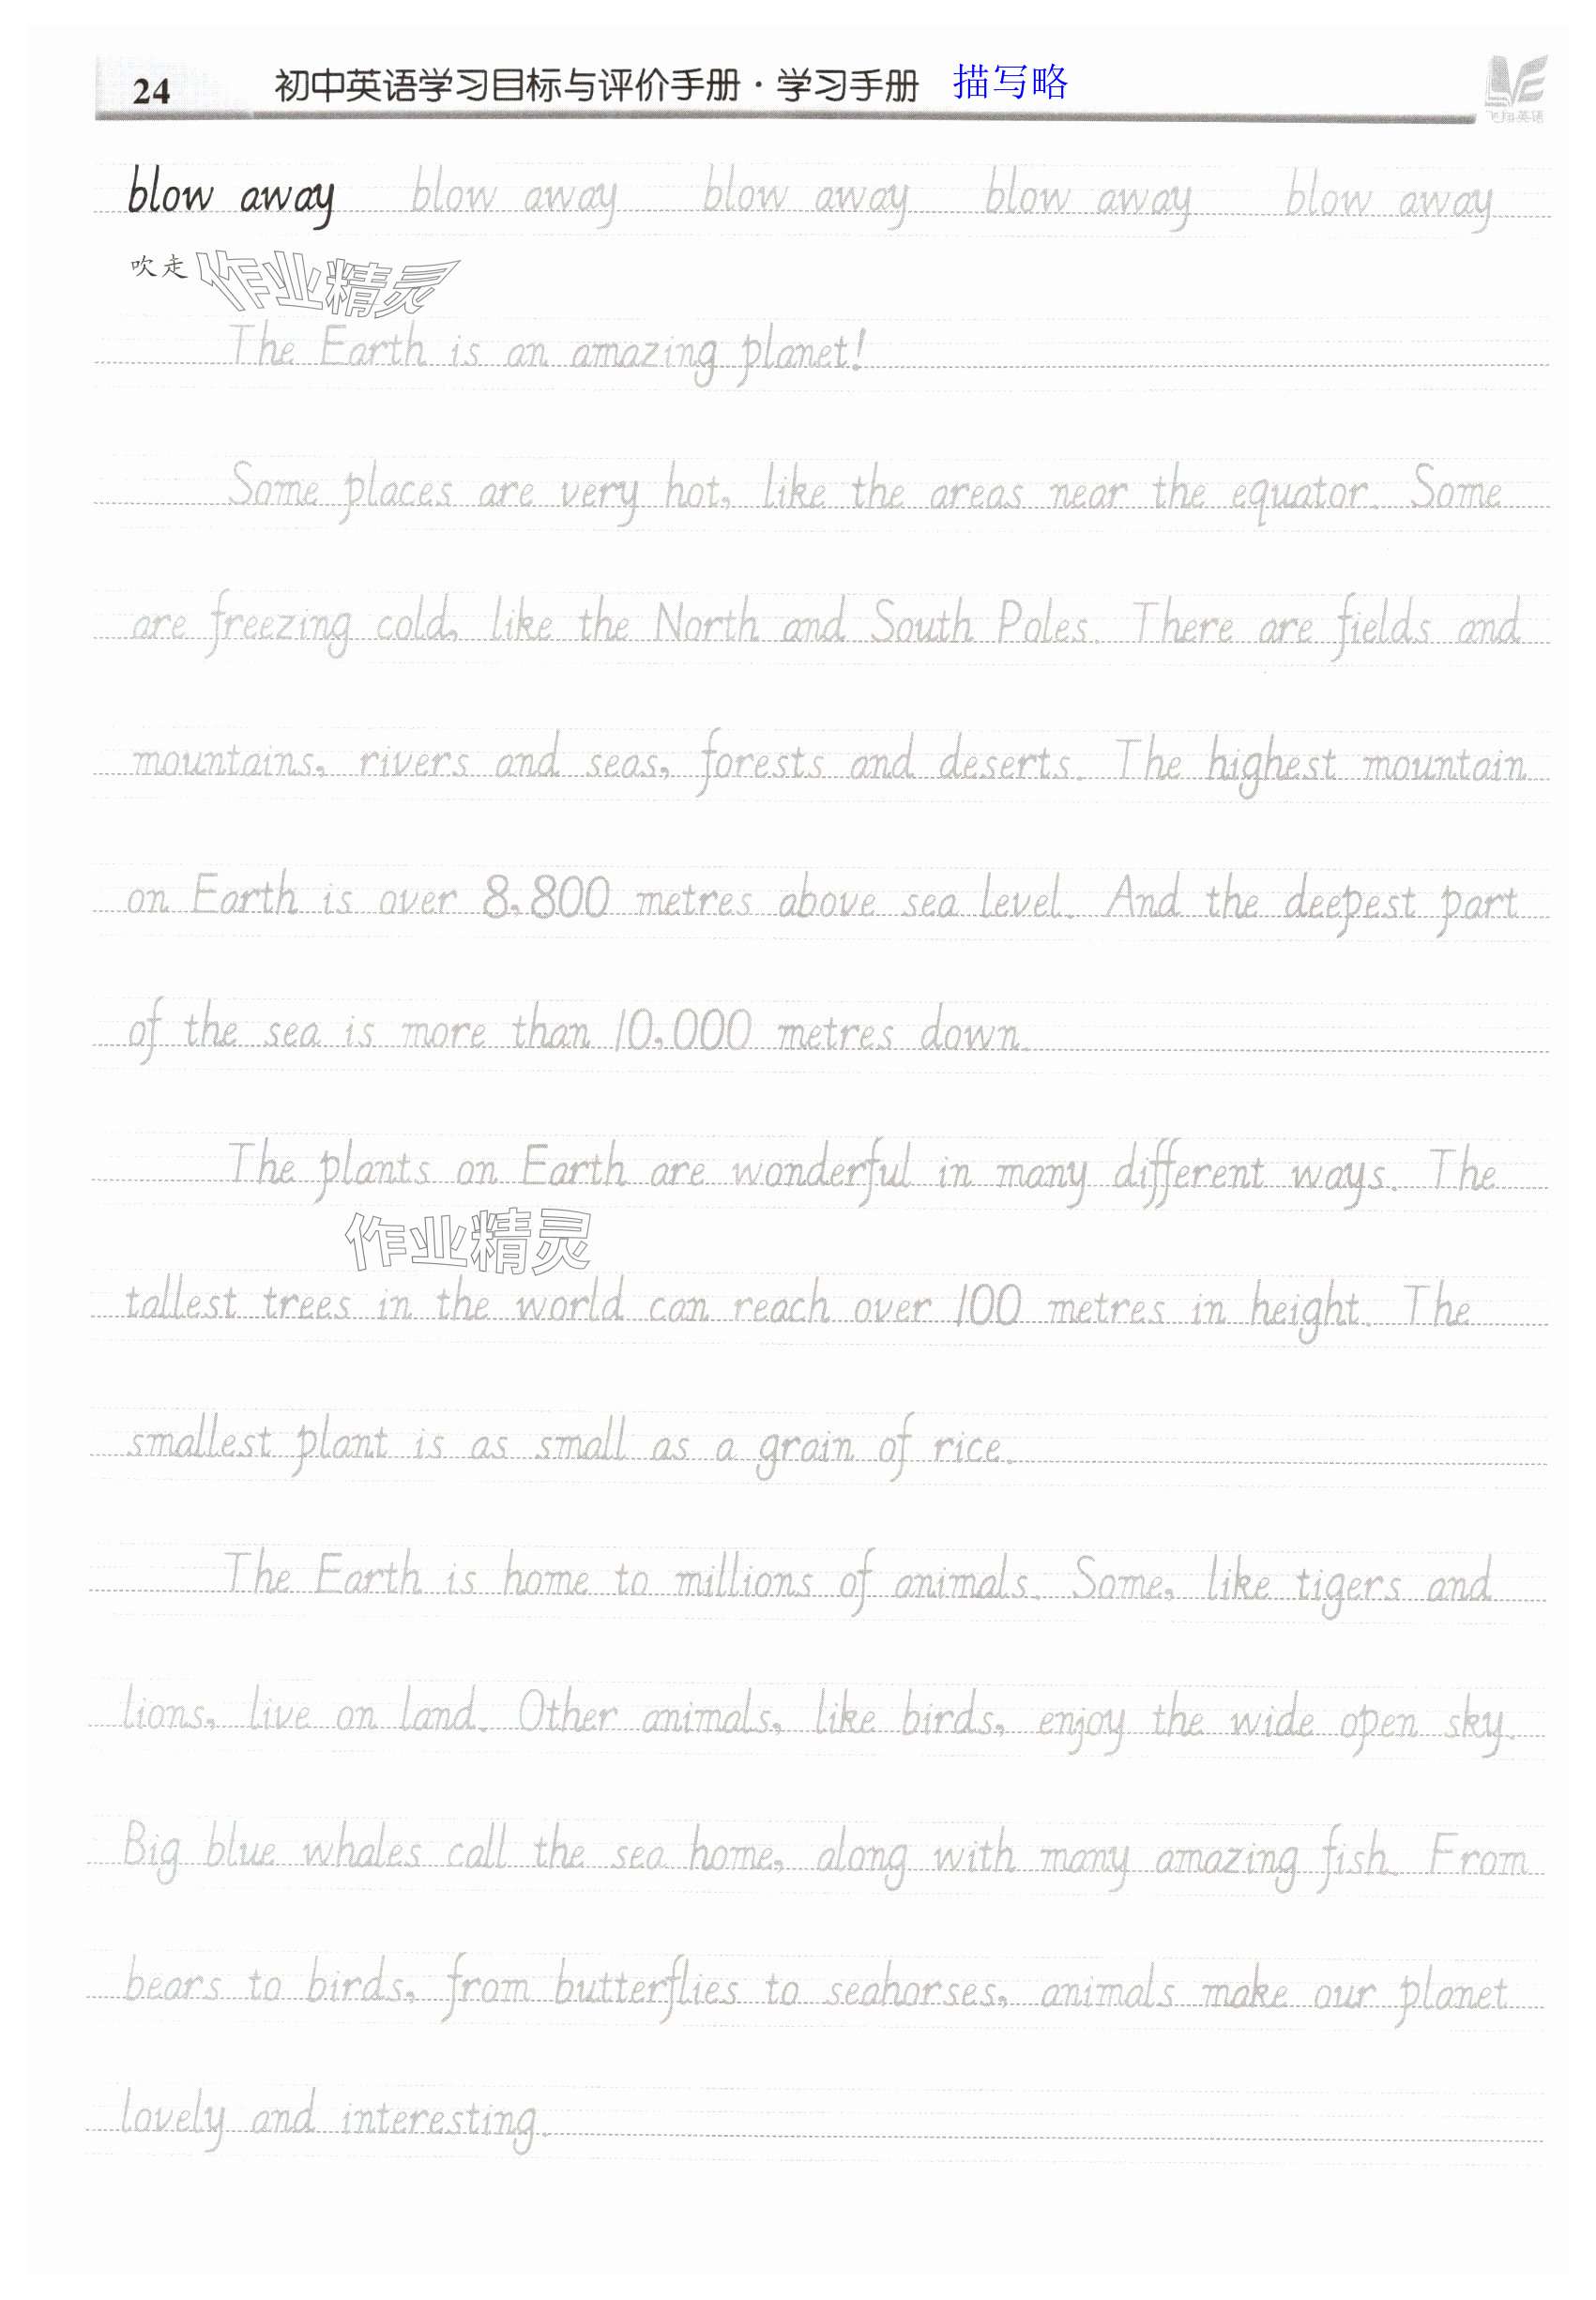 24 初中英语学习目标与评价手册·学习手册 描写略
飞翔英语
blow away blow away blow away blow away blow away
吹走 作业精灵
The Earth is an amazing planet!
Some places are very hot, like the areas near the equator. Some
are freezing cold, like the North and South Poles. There are fields and
mountains, rivers and seas, forests and deserts. The highest mountain
on Earth is over 8,800 metres above sea level. And the deepest part
of the sea is more than 10,000 metres down.
The plants on Earth are wonderful in many different ways. The
作业精灵
tallest trees in the world can reach over 100 metres in height. The
smallest plant is as small as a grain of rice.
The Earth is home to millions of animals. Some, like tigers and
lions, live on land. Other animals, like birds, enjoy the wide open sky.
Big blue whales call the sea home, along with many amazing fish. From
bears to birds, from butterflies to seahorses, animals make our planet
lovely and interesting.